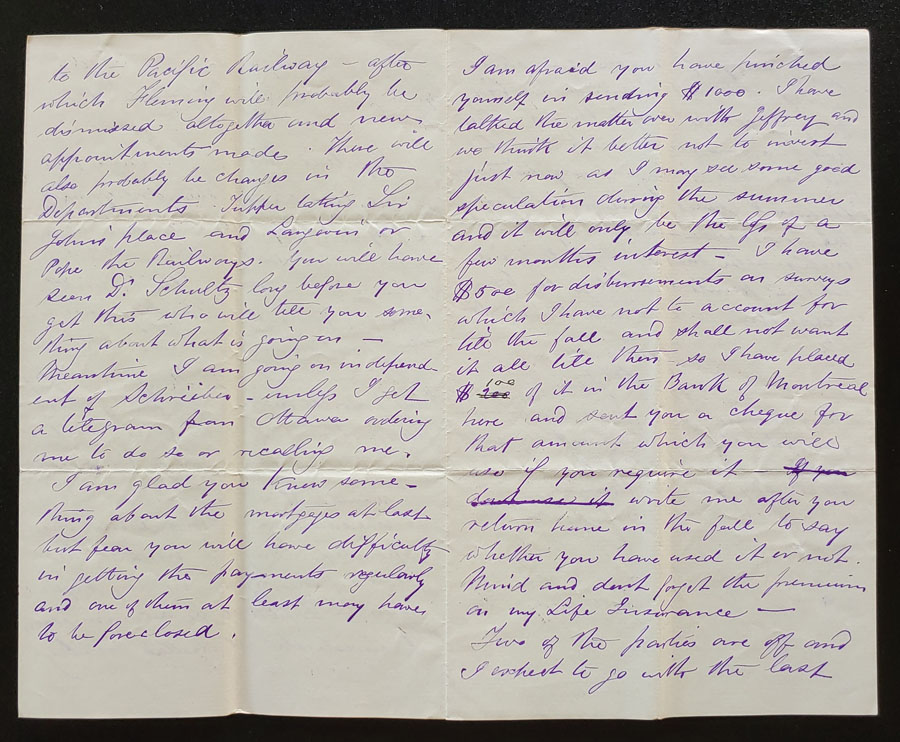 to the Pacific Railway – after
which Fleming will probably be
dismissed altogether and new
appointments made. There will
also probably be changes in the
Departments. Tupper taking Sir
John's place and Langevin or
Pope the Railways. You will have
seen Dr. Schultz long before you
get this who will tell you some-
thing about what is going on –
Meantime I am going on independ-
ent of Schrieber – unless I get
a telegram from Ottawa ordering
me to do so or recalling me.
I am glad you know some-
thing about the mortgages at last
but fear you will have difficulty
in getting the payments regularly
and one of them at least may have
to be foreclosed.
I am afraid you have pinched
yourself in sending $1000. I have
talked the matter over with Jeffrey and
we think it better not to invest
just now as I may see some good
speculation during the summer
and it will only be the loss of a
few months interest – I have
$500 for disbursements on surveys
which I have not to account for
till the fall and shall not want
it all till then so I have placed
$ 100 of it in the Bank of Montreal
here and sent you a cheque for
that amount which you will
use if you require it – If you
dont use it write me after you
return home in the fall to say
whether you have used it or not.
Mind and dont forget the premium
on my Life Insurance –
Two of the parties are off and
I expect to go with the last